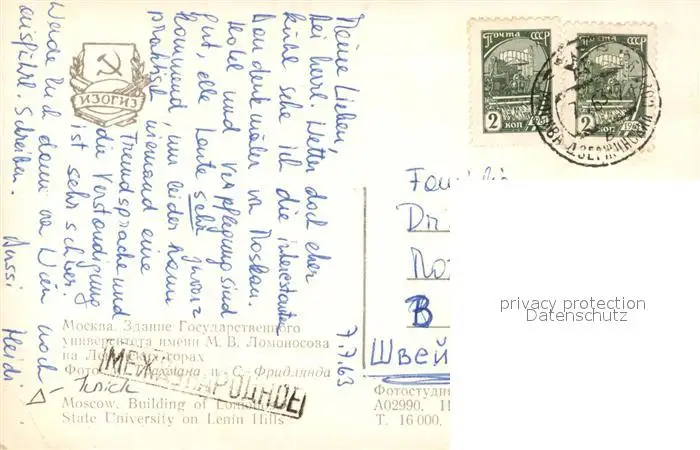 7.7.63
Meine Lieben,
Bei herrl. Wetter doch eher
kühl sehe ich die interessanten
Baudenkmäler von Moskau.
Hotel und Verpflegung sind
gut, alle Leute sehr
kommend, nur leider kann
praktisch niemand eine
Fremdsprache und
die Verständigung
ist sehr schwer.
Werde Euch dann von Wien noch
ausführl. schreiben.
Bussi
Heidi
ИЗОГИЗ
Почта СССР
2 коп 1961
Почта СССР
2 коп 1961
МОСКВА ДЗЕРЖИНСКИЙ
Москва. Здание Государственного
университета имени М. В. Ломоносова
на Ленинских горах
Фото и С. Фридлянда
Moscow. Building of Lomonosov
State University on Lenin Hills
МЕЖДУНАРОДНОЕ
Zürich
В
Швей
Фотостуди
А02990.
Т. 16 000.
privacy protection
Datenschutz